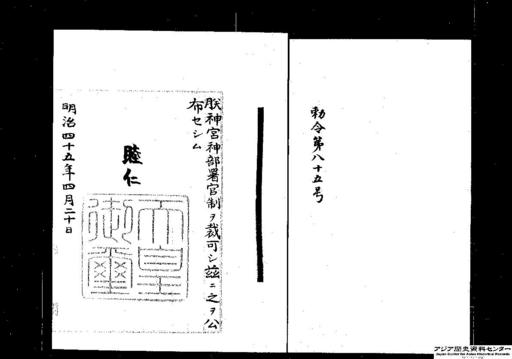 勅令第八十五号
朕神宮神部署官制ヲ裁可シ茲ニ之ヲ公
布セシム
睦仁
天皇
御璽
明治四十五年四月二十日
アジア歴史資料センター
Japan Center for Asian Historical Records